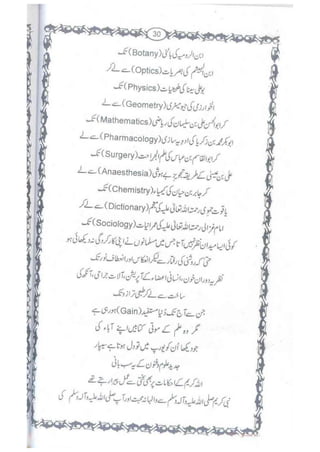 30
ابن الرومیہ کی باٹنی (Botany) تک
ابن الہیثم کی بصریات (Optics) سے لے کر
بوعلی سینا کی طبعیات (Physics) تک
الخوارزمی کی جیومیٹری (Geometry) سے لے
کر ابوالحسن علی بن سلیمان کی ریاضی (Mathematics) تک
ابوبکر محمد بن زکریا کی ادویہ سازی (Pharmacology) سے لے
کر ابوالقاسم بن عباس کی علم الجراحت (Surgery) تک
علی بن عیسیٰ کے طریقہ تجویز بے ہوشی (Anaesthesia) سے لے
کر جابر بن حیان کی کیمیاء (Chemistry) تک
یاقوت حموی رحمۃ اللہ تعالیٰ علیہ کی معجم (Dictionary) سے لے کر
امام غزالی رحمۃ اللہ تعالیٰ علیہ کی عمرانیات (Sociology) تک
کوئی ایسا میدان نظر نہیں آتا جس میں مسلمانوں نے اپنی کارکردگی نہ دکھائی ہو
حتیٰ کہ روشنی کی رفتار سے لے کر انعکاس اور انعطاف نور تک
نظریہ دوران خون، انسانی اعضاء کے آپریشن، آلات جراحی، آنکھ کی
ساخت سے لے کر طبی ترازو تک
جن سے آج تک دنیا مستفید (Gain) ہو رہی ہے
مگر وہ علم کے موتی کتابیں اپنے آباء کی
جو دیکھا ان کو یورپ میں تو دل ہوتا ہے سیپارہ
جدید علوم و فنون کے یہ سب بانی
اللہ کریم کے احکامات پر بھی سختی سے عمل پیرا رہتے تھے
نبی کریم صلی اللہ علیہ وآلہ وسلم سے والہانہ محبت اور آپ صلی اللہ علیہ وآلہ وسلم کی